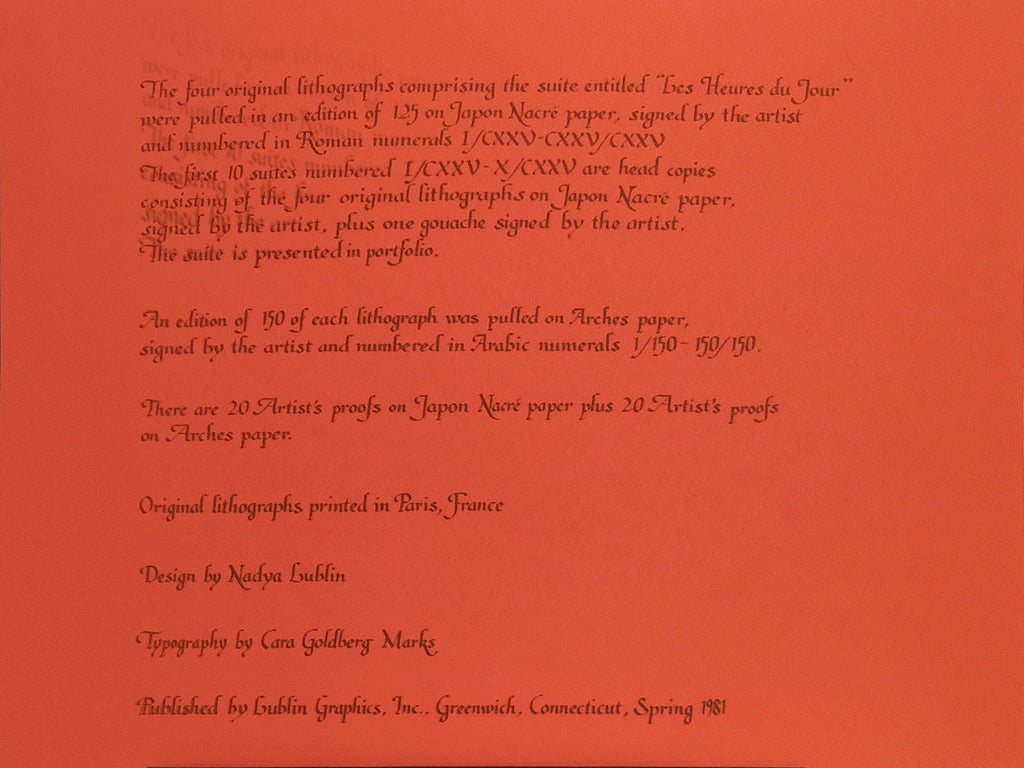 The four original lithographs comprising the suite entitled "Les Heures du Jour"
were pulled in an edition of 125 on Japon Nacré paper, signed by the artist
and numbered in Roman numerals I/CXXV-CXXV/CXXV
The first 10 suites numbered I/CXXV-X/CXXV are head copies
consisting of the four original lithographs on Japon Nacré paper,
signed by the artist, plus one gouache signed by the artist.
The suite is presented in portfolio.
An edition of 150 of each lithograph was pulled on Arches paper,
signed by the artist and numbered in Arabic numerals 1/150-150/150.
There are 20 Artist's proofs on Japon Nacré paper plus 20 Artist's proofs
on Arches paper.
Original lithographs printed in Paris, France
Design by Nadya Lublin
Typography by Cara Goldberg Marks
Published by Lublin Graphics, Inc., Greenwich, Connecticut, Spring 1981